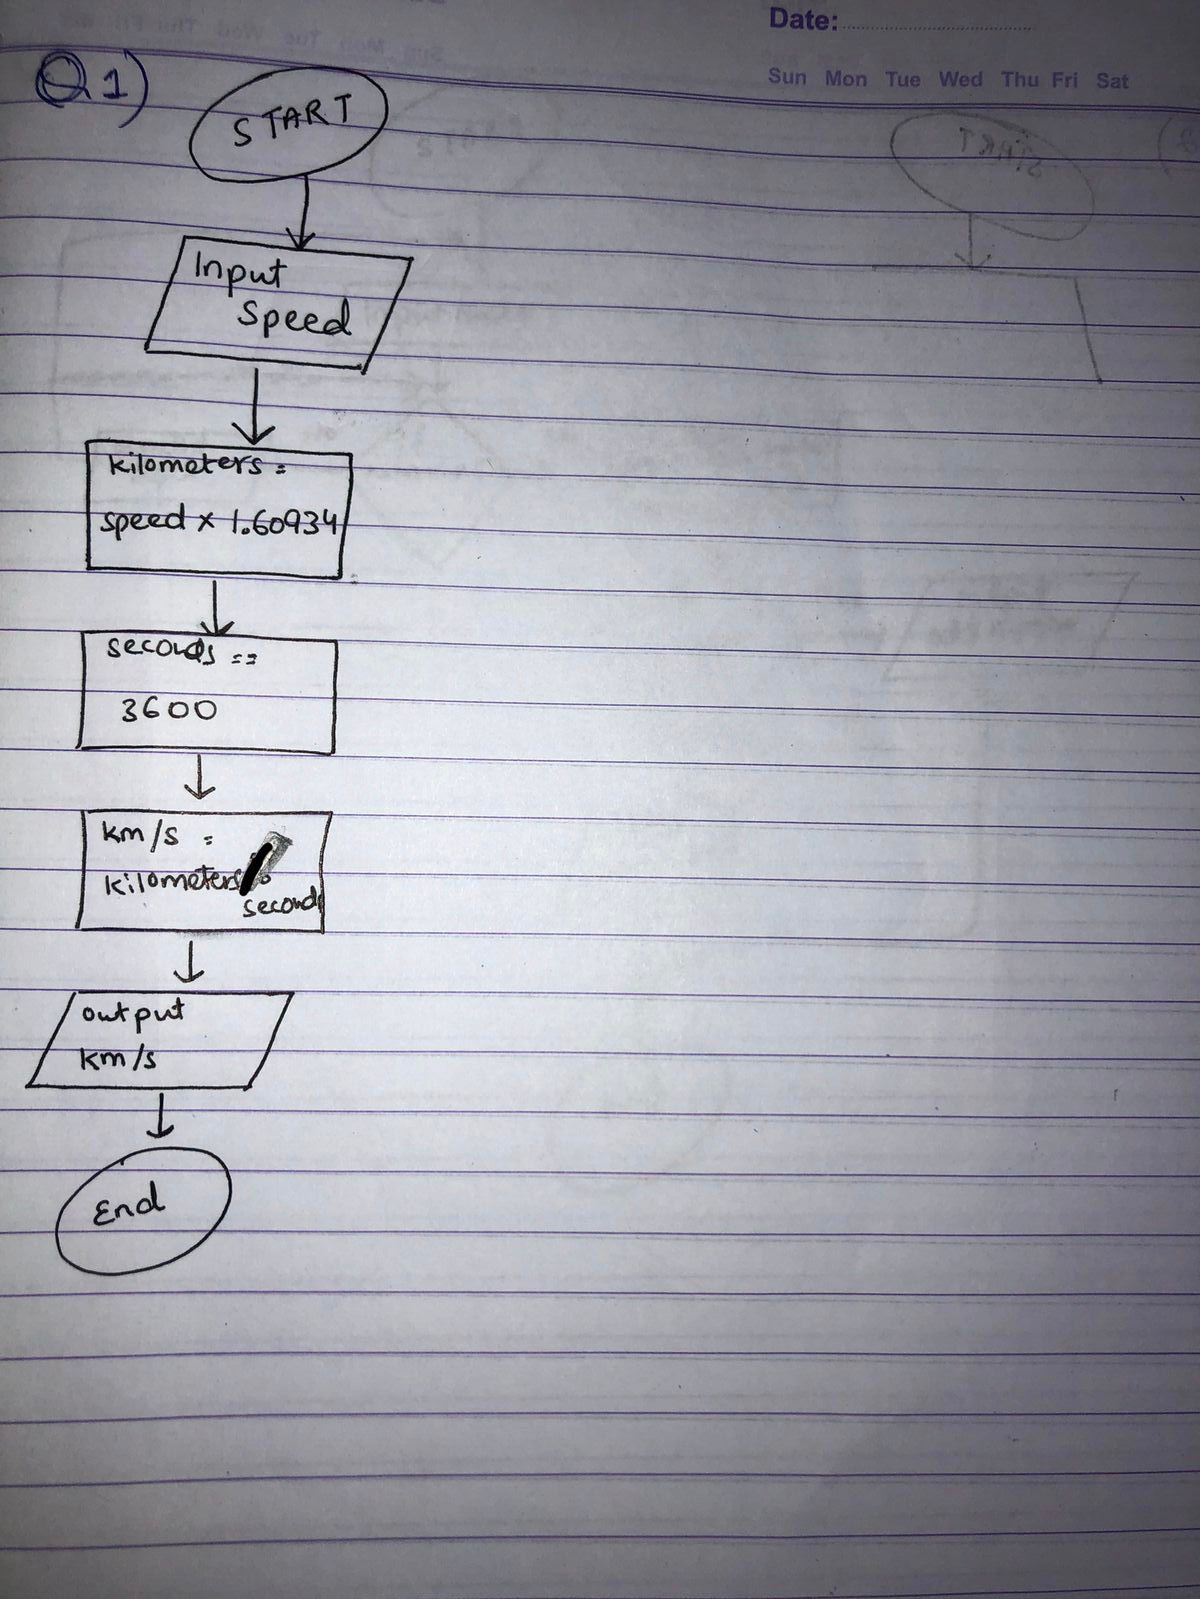 Date:
Sun Mon Tue Wed Thu Fri Sat
Q1)
START
Input
Speed
kilometers =
speed × 1.60934
seconds ==
3600
km/s =
kilometers/
seconds
output
km/s
End